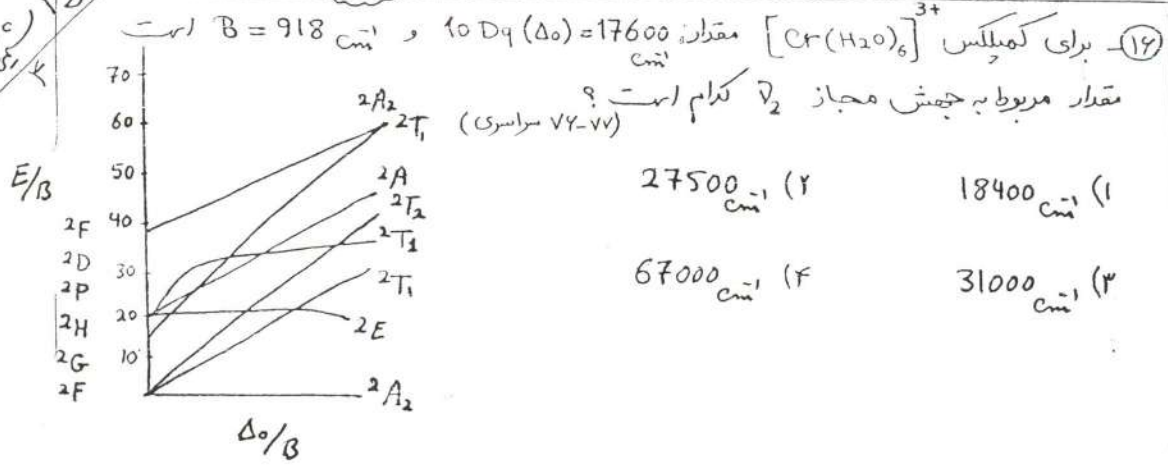 ۱۶ـ برای کمپلکس [Cr(H2O)6]3+ مقدار: 10 Dq (Δ0) = 17600 cm-1 و B = 918 cm-1 است
مقدار مربوط به جهش مجاز ν̄2 کدام است؟
(۷۶-۷۷ سراسری)
۱) 18400 cm-1
۲) 27500 cm-1
۳) 31000 cm-1
۴) 67000 cm-1
E/B
70
60
50
40
30
20
10
2F
2D
2P
2H
2G
2F
2A2
2T1
2A
2T2
2T1
2T1
2E
2A2
Δ0/B